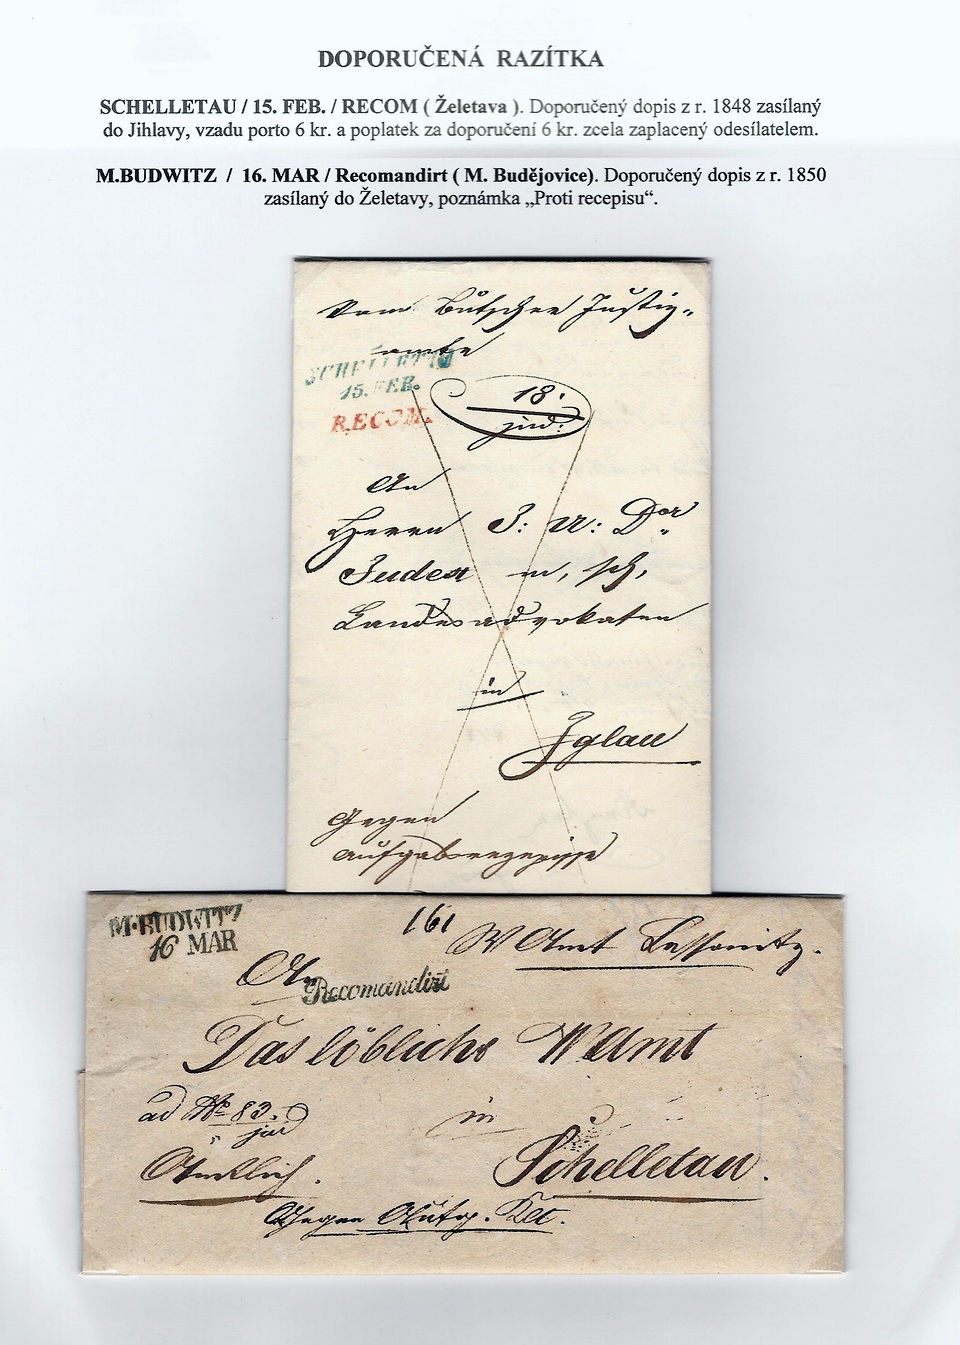 DOPORUČENÁ RAZÍTKA
SCHELLETAU / 15. FEB. / RECOM ( Želetava ). Doporučený dopis z r. 1848 zasílaný
do Jihlavy, vzadu porto 6 kr. a poplatek za doporučení 6 kr. zcela zaplacený odesílatelem.
M.BUDWITZ / 16. MAR / Recomandirt ( M. Budějovice). Doporučený dopis z r. 1850
zasílaný do Želetavy, poznámka „Proti recepisu“.
Vom Justiz-
amte
SCHELLETAU
15. FEB.
RECOM.
18.
jud:
An
Herrn J: U: Dor
Juden m, sch,
Landesadvokaten
in
Iglau
Gegen
Aufgabsrezepisse
M. BUDWITZ
16 MAR
161
W Amt
An
Recomandirt
Das löbliche WAmt
ad No 83.
jud
in
Amtlich.
Schelletau.
Gegen Aufg. Rct.